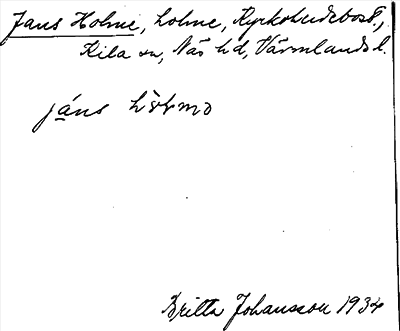 Jans Holme, holme, Kyrkohudebost.,
Kila sn, Näs hd, Värmlands l.
jáns
Britta Johansson 1934